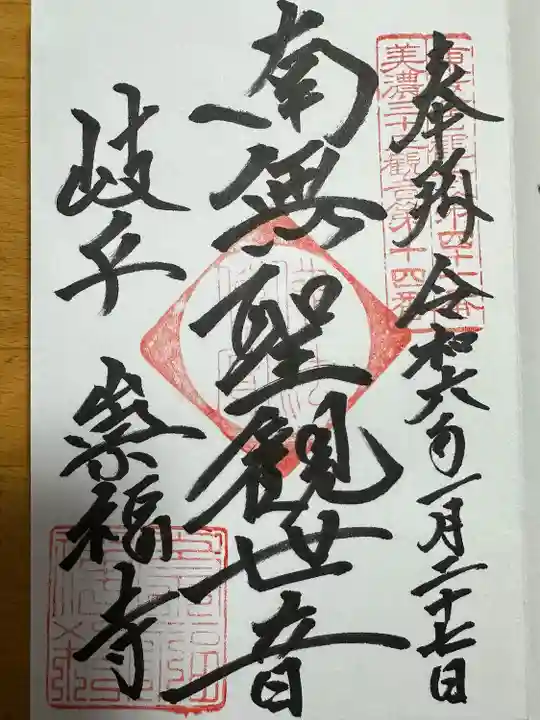 奉拝 令和六年一月二十七日
美濃三十三観音第十四番
南無聖観世音
岐阜 崇福寺